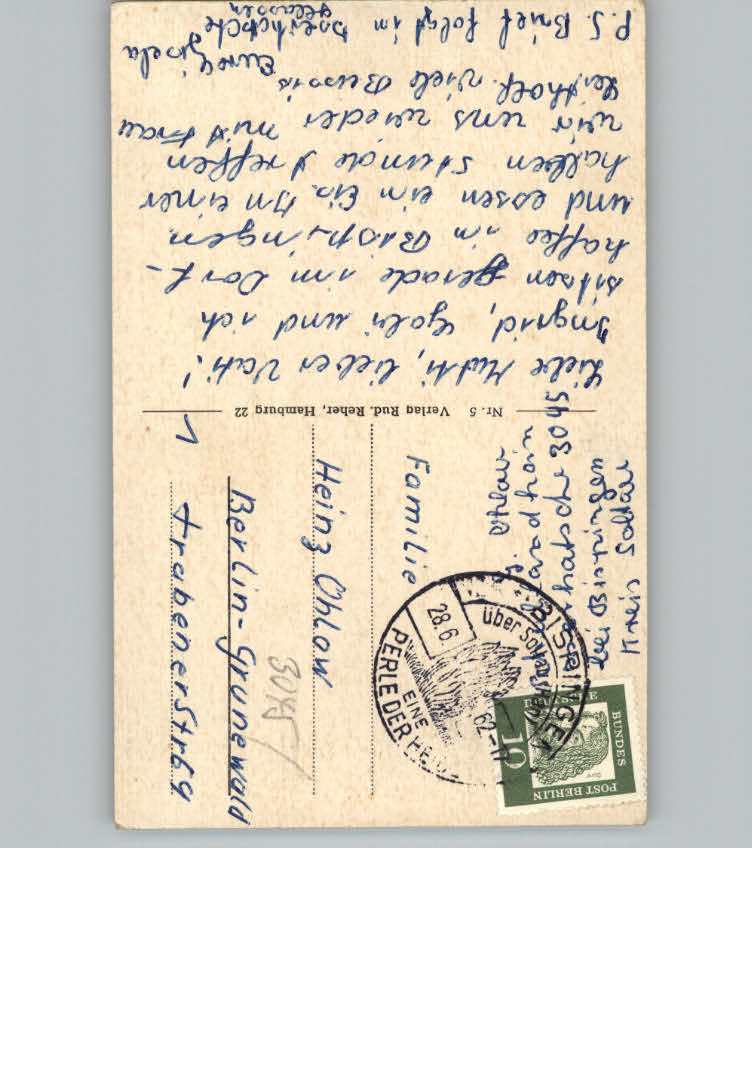 Liebe Mutti, lieber Vati!
Ingrid, Gabi und ich
sitzen gerade im Dorf-
kaffee in Bispingen
und essen ein Eis. In einer
halben Stunde treffen
wir uns wieder mit Frau
Viele Bussis
Eure Gisela
P.S. Brief folgt im
Nr. 5 Verlag Rud. Reher, Hamburg 22
3045
bei Bispingen
Kreis Soltau
Familie
Heinz Ohlow
Berlin-Grunewald
Trabenerstr 69
1
3045
BISPINGEN
über Soltau
28.6
62-17
EINE
PERLE DER HEIDE
DEUTSCHE BUNDES
POST BERLIN
10